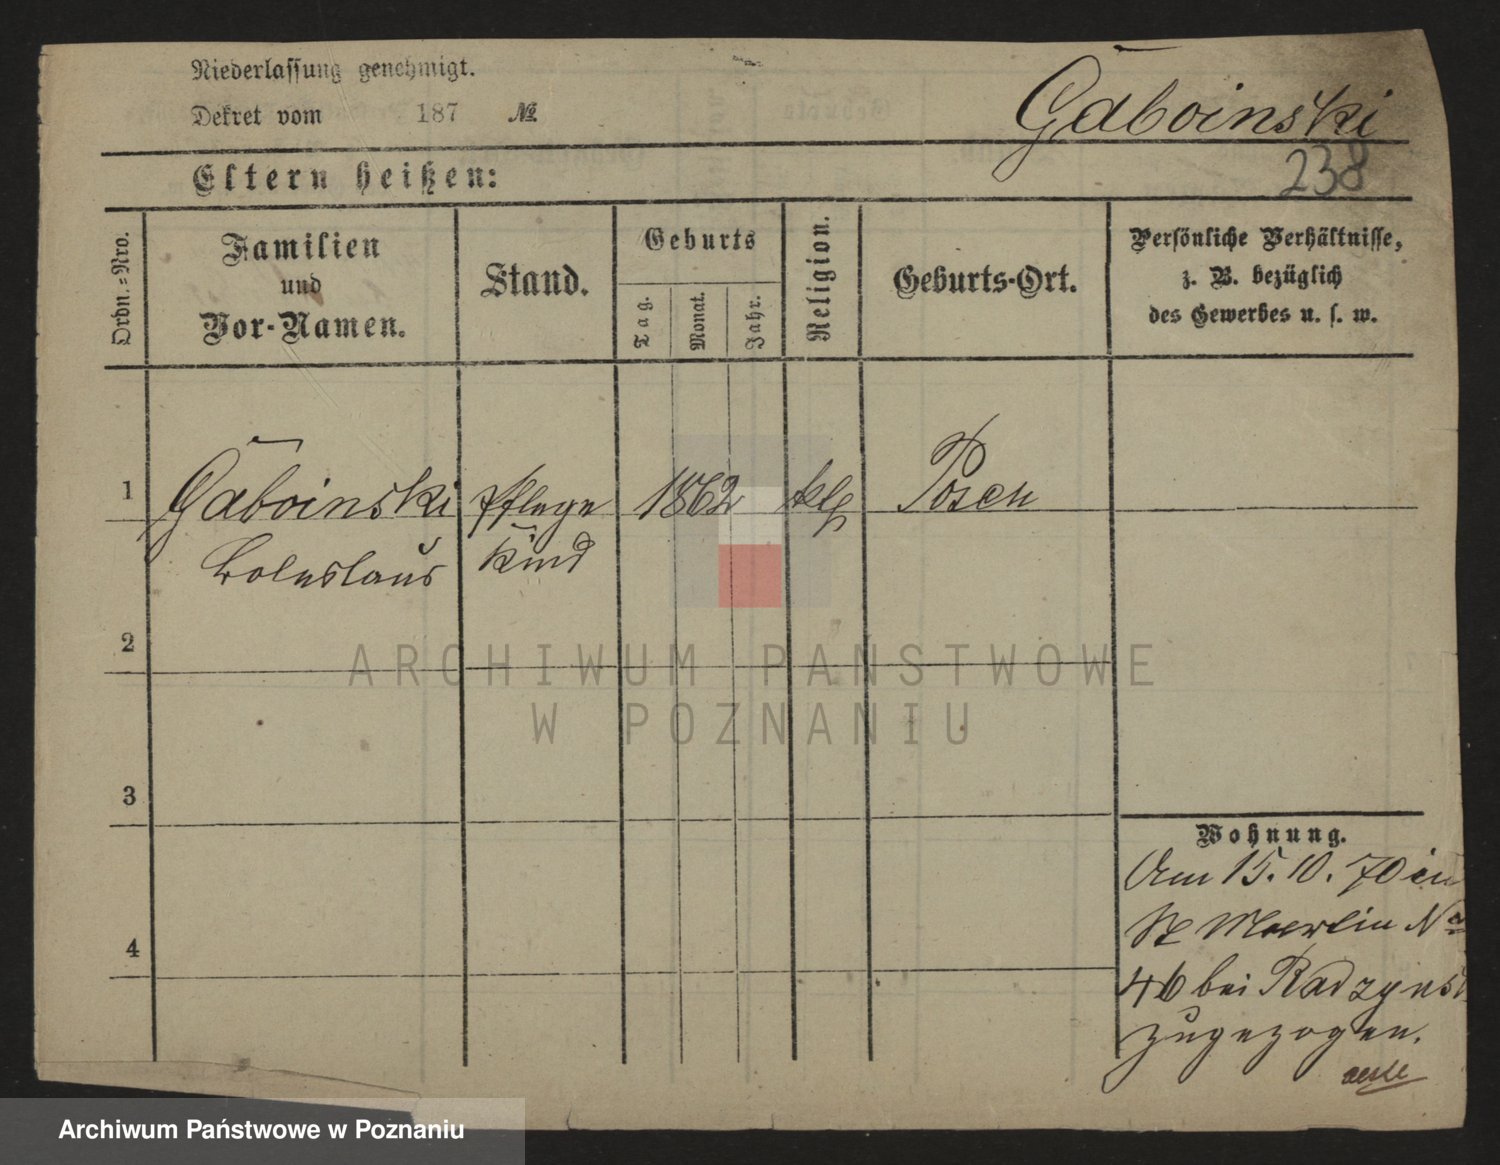 Niederlassung genehmigt.
Dekret vom 187 №
Gaboinski
238
Eltern heißen:
Ordn.-Nro.
Familien
und
Vor-Namen.
Stand.
Geburts
Tag.
Monat.
Jahr.
Religion.
Geburts-Ort.
Persönliche Verhältnisse,
z. B. bezüglich
des Gewerbes u. s. w.
1 Gaboinski Pflege 1862 Posen
Boleslaus kind
2
ARCHIWUM PAŃSTWOWE
W POZNANIU
3
Wohnung.
Am 15. 10. 70 in
St Martin No
4
46 bei
zugezogen.
Archiwum Państwowe w Poznaniu